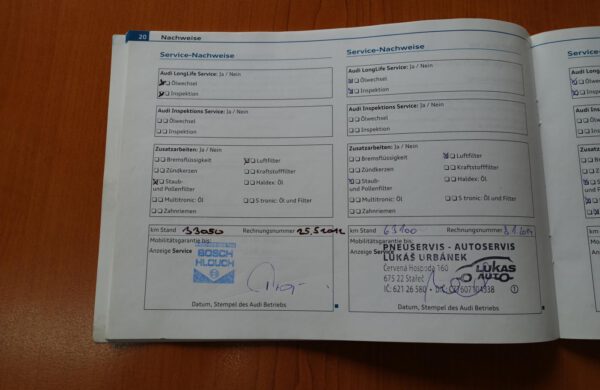 20 Nachweise
Service-Nachweise
Audi LongLife Service: Ja / Nein
Ölwechsel
Inspektion
Audi Inspektions Service: Ja / Nein
Ölwechsel
Inspektion
Zusatzarbeiten: Ja / Nein
Bremsflüssigkeit Luftfilter
Zündkerzen Kraftstofffilter
Staub- Haldex: Öl
und Pollenfilter
Multitronic: Öl S tronic: Öl und Filter
Zahnriemen
km Stand 33050 Rechnungsnummer 25.5.2012
Mobilitätsgarantie bis:
Anzeige Service
BOSCH
HLOUCH
Datum, Stempel des Audi Betriebs
Service-Nachweise
Audi LongLife Service: Ja / Nein
Ölwechsel
Inspektion
Audi Inspektions Service: Ja / Nein
Ölwechsel
Inspektion
Zusatzarbeiten: Ja / Nein
Bremsflüssigkeit Luftfilter
Zündkerzen Kraftstofffilter
Staub- Haldex: Öl
und Pollenfilter
Multitronic: Öl S tronic: Öl und Filter
Zahnriemen
km Stand 63100 Rechnungsnummer
Mobilitätsgarantie bis:
Anzeige Service
PNEUSERVIS - AUTOSERVIS
LUKÁŠ URBÁNEK
Červená Hospoda 160
675 22 Stařeč
LUKAS
AUTO
Datum, Stempel des Audi Betriebs
Service-
Audi Lon
Ölw
Insp
Audi Insp
Ölw
Insp
Zusatzar